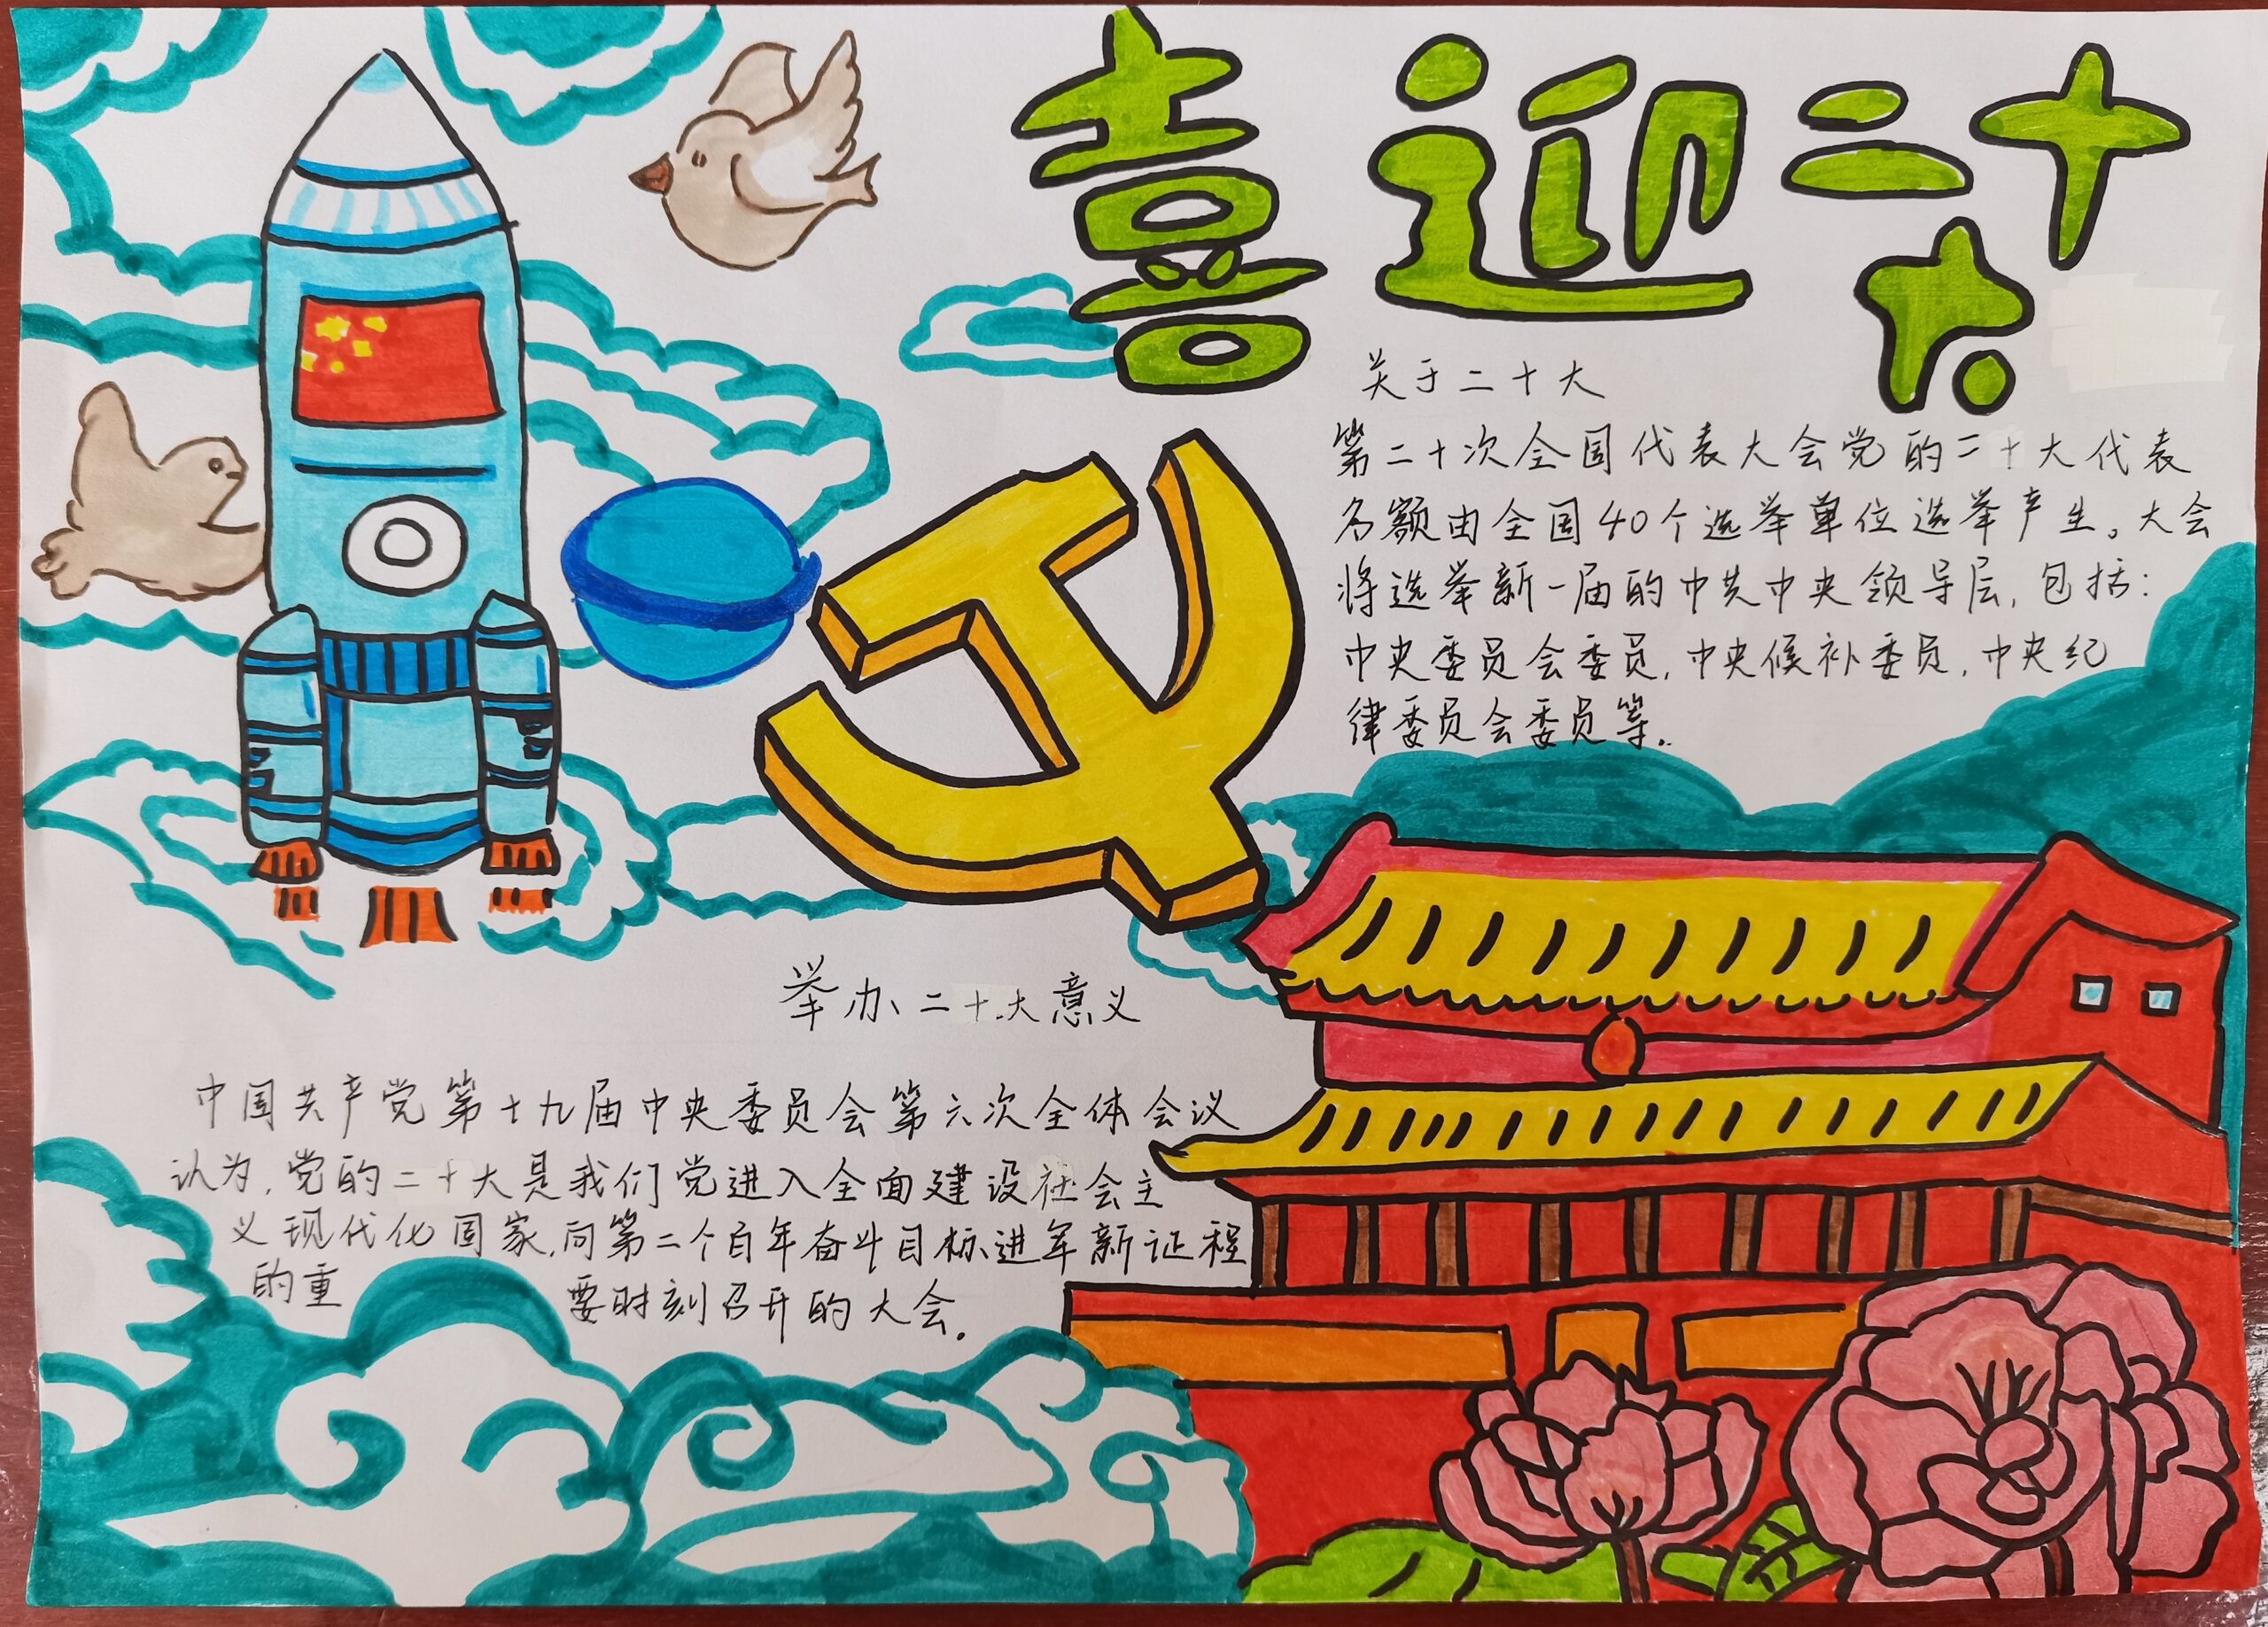 喜迎二十大
关于二十大
第二十次全国代表大会党的二十大代表
名额由全国40个选举单位选举产生。大会
将选举新一届的中共中央领导层,包括:
中央委员会委员,中央候补委员,中央纪
律委员会委员等。
举办二十大意义
中国共产党第十九届中央委员会第六次全体会议
认为,党的二十大是我们党进入全面建设社会主
义现代化国家,向第二个百年奋斗目标进军新证程
的重 要时刻召开的大会。